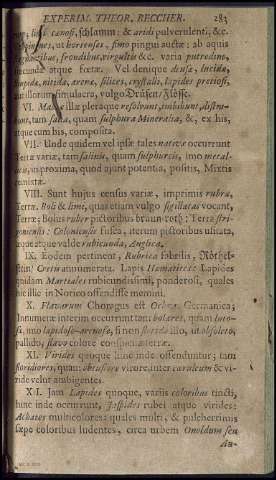 EXPERIM. THEOR. BECCHER. 283
limosi, schlamm: & aridi pulverulenti, &c.
ut hortenses, fimo pingui auctæ: ab aquis
frondibus, virgultis &c. varia putredine,
fœtæ. Vel denique densæ, lucidæ,
nitidæ, arenæ, silices, crystalli, lapides pretiosi,
illorum simulacra, volgo Drüsen/ Flüsse.
VI. illæ pleræque resolvunt, imbibunt,
tam salia, quam sulphura Mineralia, &, ex his,
atque cum his, composita.
VII. Unde quidem vel ipsæ tales nativæ occurrunt
Terræ variæ, tam salinis, quam sulphureis, imo
proxima, quod ajunt potentia, positis, Mixtis
VIII. Sunt hujus census variæ, imprimis rubræ,
Terræ. Boli & lime, quas etiam vulgo sigillatas vocant,
Terræ; Bolus ruber pictoribus braun-roth: Terra
Coloniensis fusca, iterum pictoribus usitata,
æque atque valde rubicunda, Anglica.
IX. Eodem pertinent, Rubrica fabrilis, Röthel-
stein: Cretis annumerata. Lapis Hæmatites: Lapides
quidam Martiales rubicundissimi, ponderosi, quales
illic in Norico offendisse memini.
X. Flavarum Choragus est Ochra Germanica;
innumeræ interim occurrunt tam bolares, quam
imo lapidoso-arenosæ, si non florido illo, ut obsoleto,
pallido, flavo colore conspiciendæ.
XI. Virides quoque hinc inde offenduntur; tam
floridiores, quam obscuriore virore, inter cæruleum & vi-
ride velut ambigentes.
XII. Jam Lapides quoque, variis coloribus tincti,
hinc inde occurrunt, Jaspides rubei atque virides:
Achates multicolores: quales multi, & pulcherrimis
sæpe coloribus ludentes, circa urbem Onoldum seu